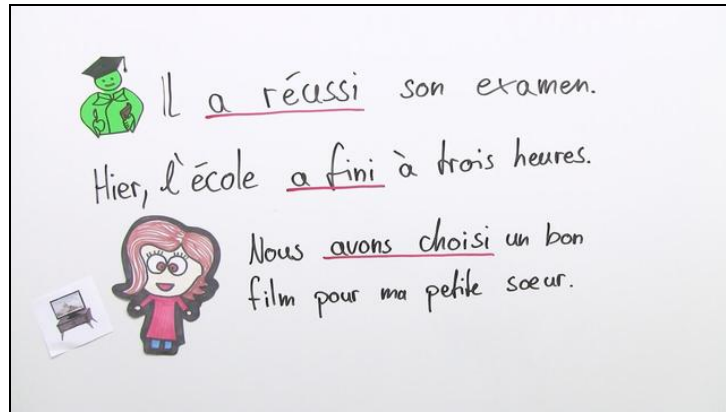 Il a réussi son examen.
Hier, l'école a fini à trois heures.
Nous avons choisi un bon
film pour ma petite sœur.